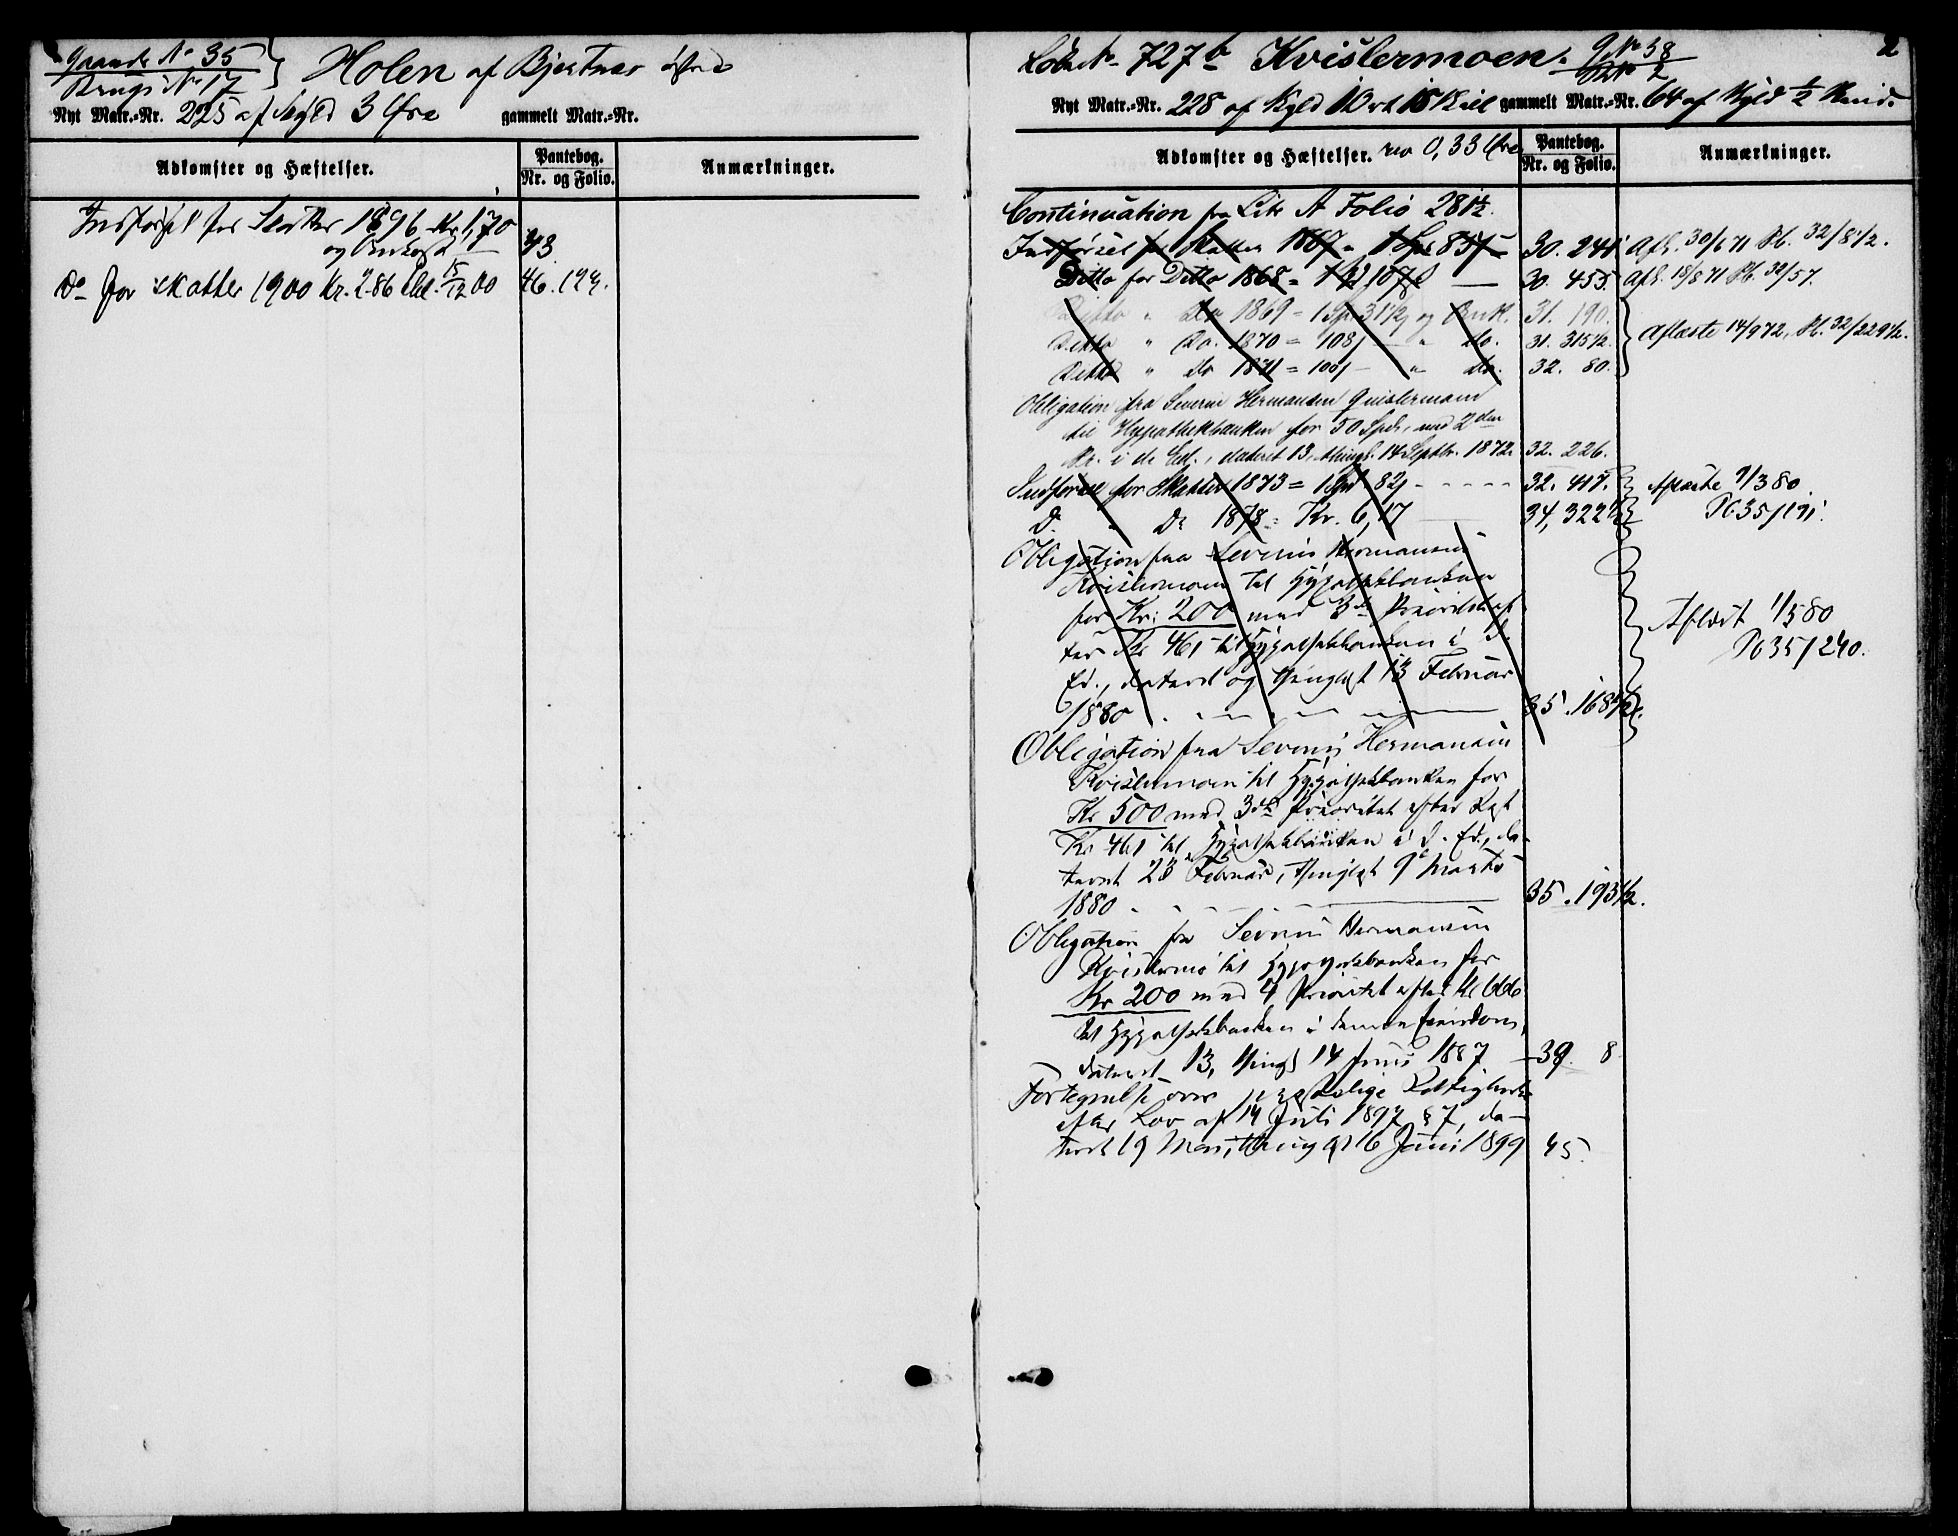 Gaards No 35
Brugs No 17
Holen af Bjertnæs øfre
Nyt Matr.-Nr. 225 af Skyld 3 Øre gammelt Matr.-Nr.
Adkomster og Hæftelser.
Pantebog.
Nr. og Folio.
Anmærkninger.
Indførsel for Skatter 1896 Kr 1,70
og Omkost. — 43
Do for skatter 1900 Kr. 2.86 15/12 00 46.
2
Løbe No 727 b Kvislermoen. G No 38
B No 2
Nyt Matr.-Nr. 228 af Skyld 10 15 Skil gammelt Matr.-Nr. 64 af Skyld 1/2 Hud.
Adkomster og Hæftelser. rev 0,33 Øre
Pantebog.
Nr. og Folio.
Anmærkninger.
Continuation fra Litr A Folio 281 1/2.
Indførsel for Skatter 1867 = 1 Spd 83 — 30. 241 Afl. 30/6 71 Pb. 32/8 1/2.
Ditto for Ditto 1868 = 107 — 30. 455. Afl. 18/8 71 Pb. 32/57.
Ditto " Do 1869 = 1 Sp 31 1/2 og Omk. 31. 190.
Ditto " Do. 1870 = 108 — " do. 31. 315 1/2. Aflæste 14/9 72, Pb. 32/229 1/2.
Ditto " Do 1871 = 100 — " do. 32. 80.
Obligation fra Severin Hermansen Quislermoen
til Hypothekbanken for 50 Spdr, med 2den
Pr. i de Eid., dateret 13, thingl. 14 Septbr. 1872. 32. 226.
Indførsel for Skatter 1873 = 1 Spd 82 - - - - 32. 417. Aflæste 1/3 80
D. " Do 1878 = Kr. 6,17 — 34, 322 1/2 Pb 35/191.
Obligation fra Severin Hermansen
Kvislermoen til Hypothekbanken
for Kr: 200 med 3de Prioritet ef-
ter Kr 461 til Hypothekbanken i D.
Ed., dateret og thinglyst 13 Februar
1880 . — — — 35. 168 1/2.
Aflæst 1/5 80
Pb 35/240.
Obligation fra Severin Hermansen
Kvislermoen til Hypothekbanken for
Kr 500 med 3de Prioritet efter
Kr 461 til Hypothekbanken i D. Ed., da-
teret 23 Februar, thinglyst 9e Marts
1880 - - - 35. 193 1/2.
Obligation fra Severin Hermansen
Kvislermo til Hypothekbanken for
Kr 200 med 4 Prioritet efter Kr 666
til Hypothekbanken i samme Eiendom,
dateret 13, thingl 14 Juni 1887 — 39. 8
Fortegnelse over Rettigheder
efter Lov af 14 Juli 1897 § 7, da-
teret 19 Mai, thingl 16 Juni 1899 45.